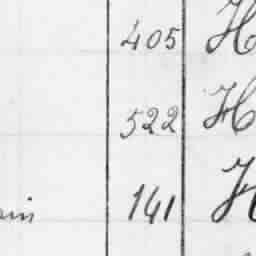 405 H
522 H
141 H